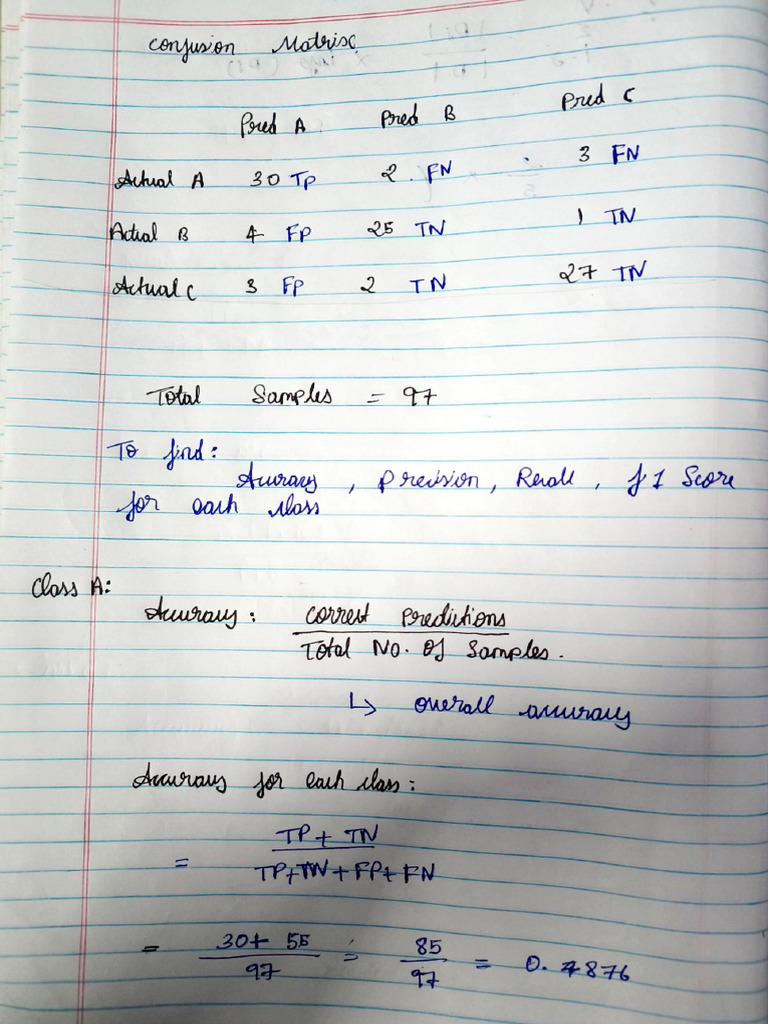 Confusion Matrix
Pred A Pred B Pred C
Actual A 30 TP 2 FN 3 FN
Actual B 4 FP 25 TN 1 TN
Actual C 3 FP 2 TN 27 TN
Total Samples = 97
To find:
Accuracy, Precision, Recall, f1 Score
for each class
Class A:
Accuracy: Correct Predictions
Total No. Of Samples.
↳ overall accuracy
Accuracy for each class:
TP + TN
= TP+TN+FP+FN
= 30+ 55 / 97 = 85 / 97 = 0.4876